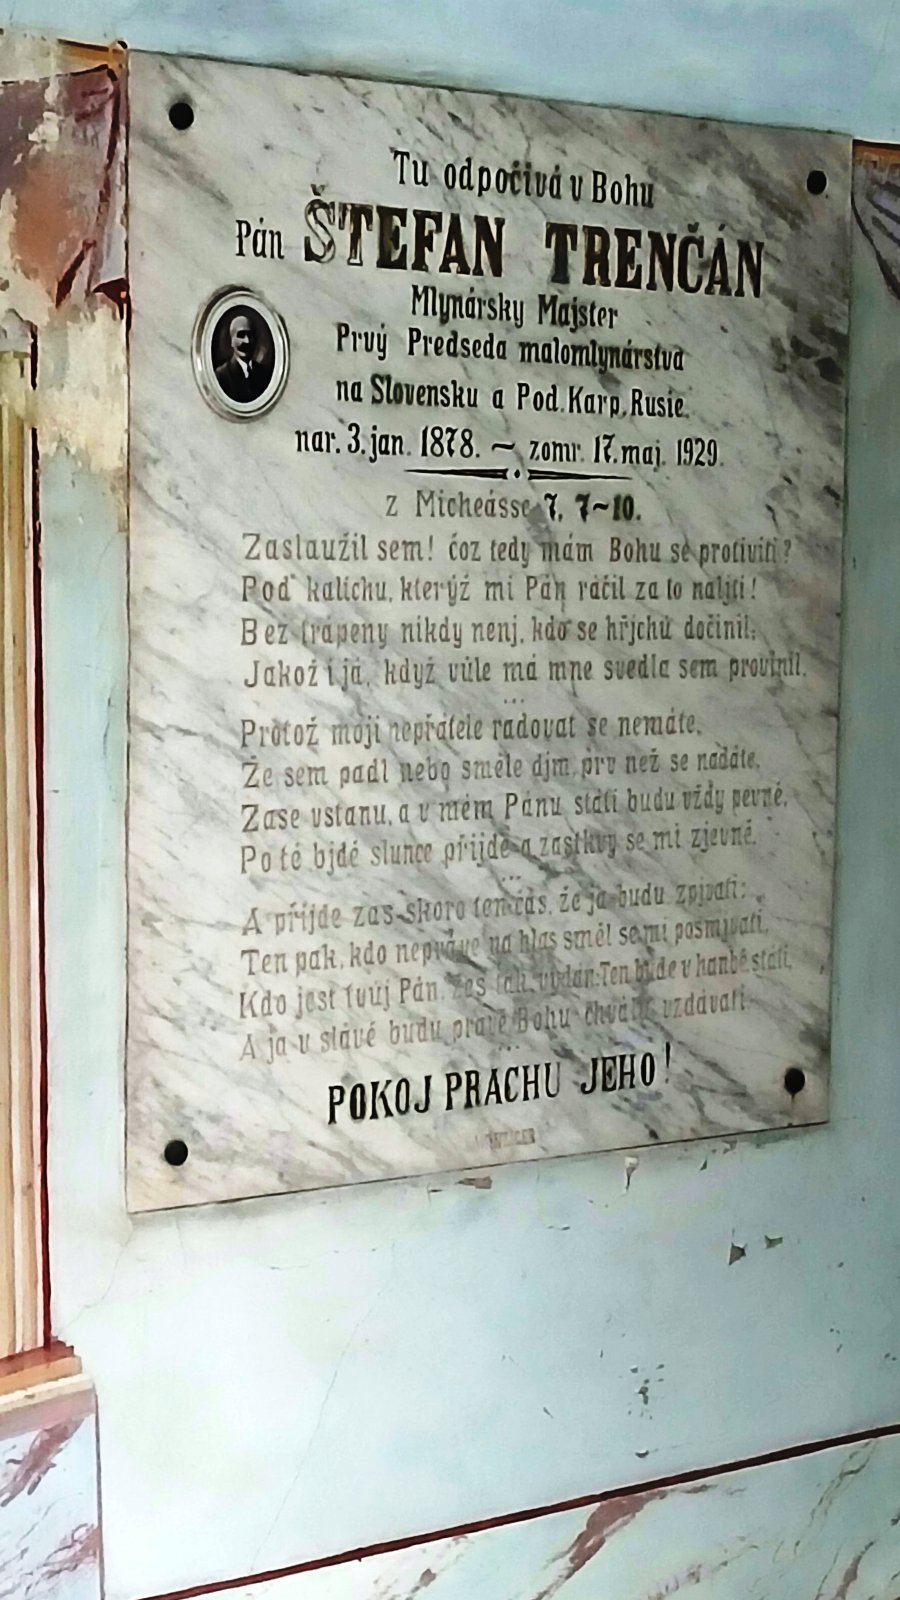 Tu odpočivá v Bohu
Pán ŠTEFAN TRENČÁN
Mlynársky Majster
Prvý Predseda malomlynárstva
na Slovensku a Pod. Karp. Rusie.
nar. 3. jan. 1878. ~ zomr. 17. maj. 1929.
z Micheásse 7, 7~10.
Zaslaužil sem! čoz tedy mám Bohu se protiviti?
Pod kalichu, kterýž mi Pán ráčil za to naljti!
Bez trápeny nikdy nenj, kdo se hřjchú dočinil;
Jakož i já, když vúle má mne svedla sem provinil.
...
Protož moji nepřátele radovat se nemáte,
Že sem padl nebo směle djm, prv než se nadáte,
Zase vstanu, a v mém Pánu státi budu vždy pevně,
Po té bjdě slunce přijdě a zastkvy se mi zjevně.
...
A přijde zas skoro ten čás, že ja budu zpjvati:
Ten pak, kdo nepráve na hlas směl se mi posmjvati,
Kdo jest tvúj Pán, žes tak vydán. Ten bude v hanbě státi,
A ja v slávě budu pravě Bohu chválu vzdávati.
...
POKOJ PRACHU JEHO!